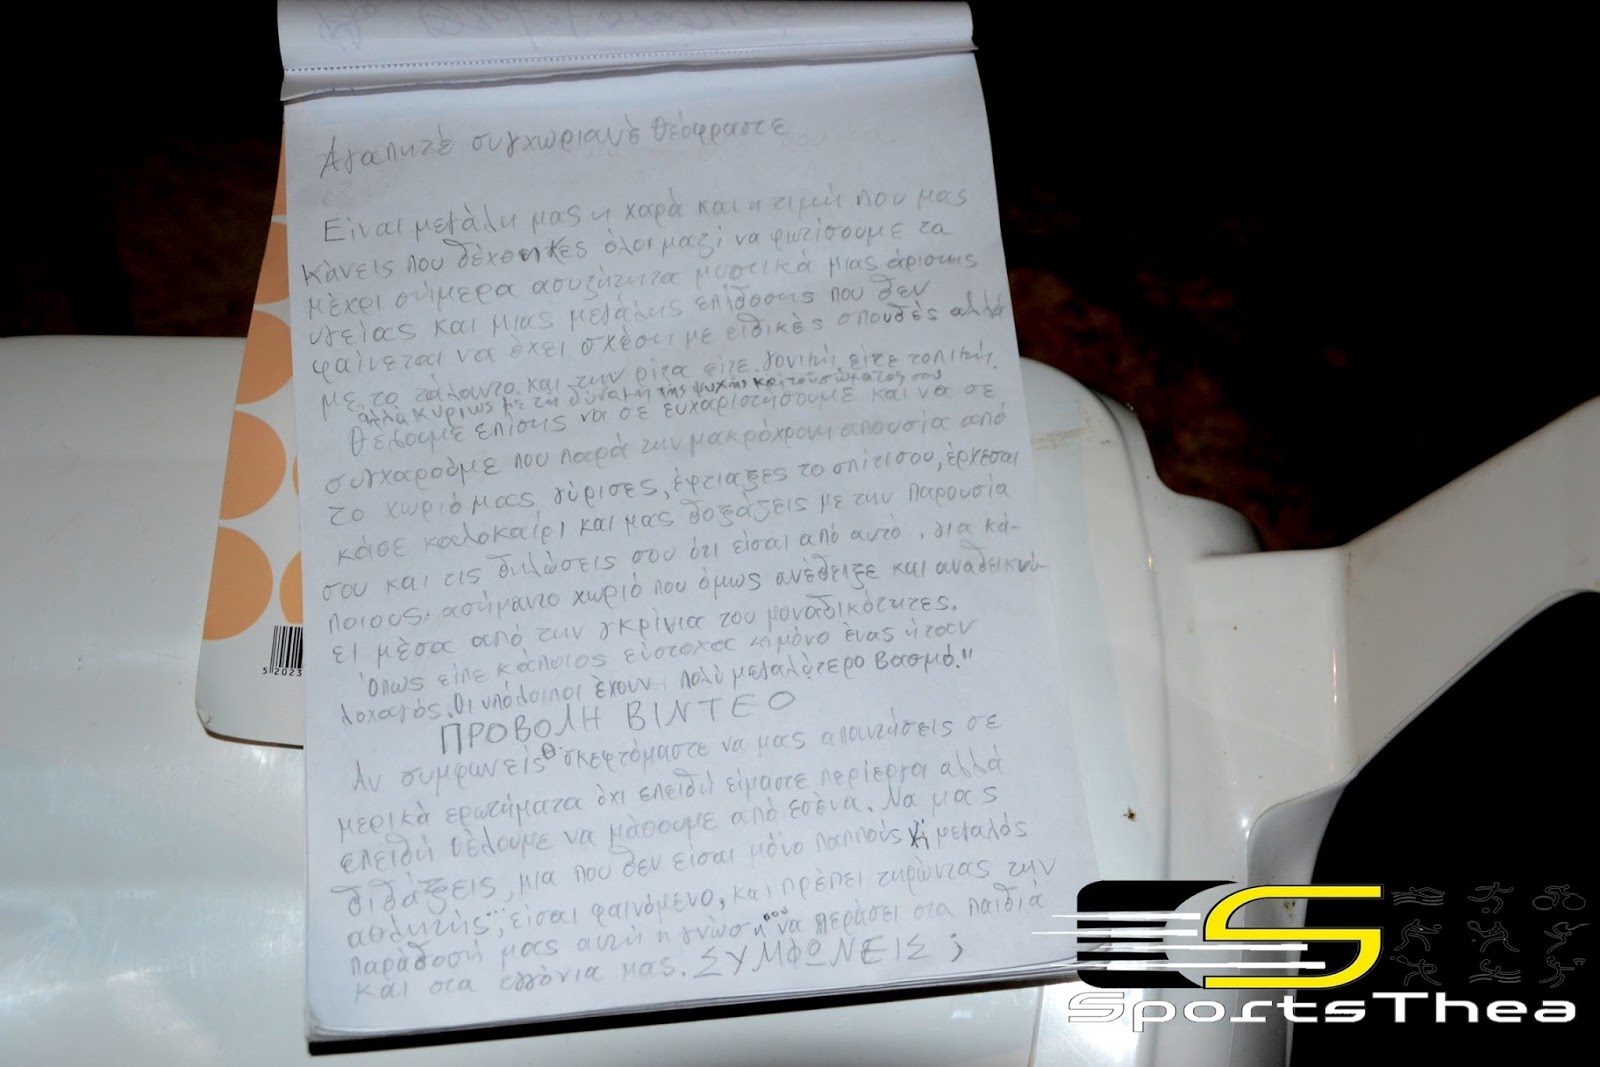 Αγαπητέ συγχωριανέ Θεόφραστε
Είναι μεγάλη μας η χαρά και η τιμή που μας
κάνεις που δέχθηκες όλοι μαζί να φωτίσουμε τα
μέχρι σήμερα ασυζήτητα μυστικά μιας άριστης
υγείας και μιας μεγάλης επίδοσης που δεν
φαίνεται να έχει σχέση με ειδικές σπουδές αλλά
με το ταλέντο και την ρίζα είτε γονική είτε τοπική.
αλλά κυρίως με τη δύναμη της ψυχής και του σώματος σου
Θέλουμε επίσης να σε ευχαριστήσουμε και να σε
συγχαρούμε που παρά την μακρόχρονη απουσία από
το χωριό μας γύρισες, έφτιαξες το σπίτι σου, έρχεσαι
κάθε καλοκαίρι και μας δοξάζεις με την παρουσία
σου και τις δηλώσεις σου ότι είσαι από αυτό, για κά-
ποιους, ασήμαντο χωριό που όμως ανέδειξε και αναδεικνύ-
ει μέσα από την γκρίνια του μοναδικότητες.
Όπως είπε κάποιος εύστοχα "μόνο ένας ήταν
λοχαγός. Οι υπόλοιποι έχουν πολύ μεγαλύτερο βαθμό."
ΠΡΟΒΟΛΗ ΒΙΝΤΕΟ
Αν συμφωνείς Θ. σκεφτόμαστε να μας απαντήσεις σε
μερικά ερωτήματα όχι επειδή είμαστε περίεργοι αλλά
επειδή θέλουμε να μάθουμε από εσένα. Να μας
διδάξεις, μια που δεν είσαι μόνο παππούς ή μεγάλος
αθλητής, είσαι φαινόμενο, και πρέπει τηρώντας την
παράδοσή μας αυτή η γνώση σου να περάσει στα παιδιά
και στα εγγόνια μας. ΣΥΜΦΩΝΕΙΣ;
5 2023
SportsThea